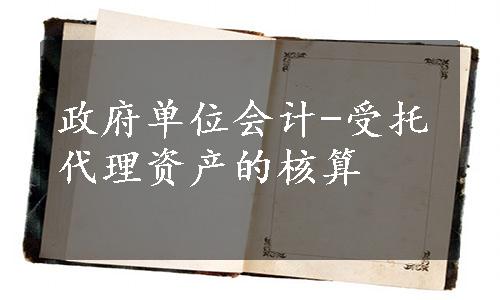 政府单位会计-受托
代理资产的核算